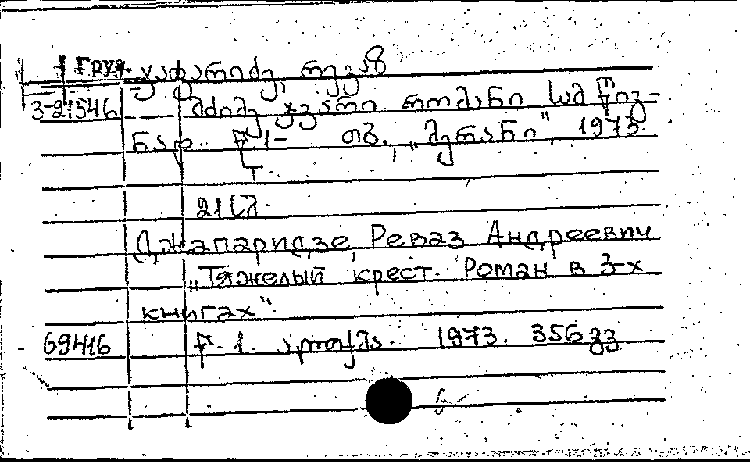 Груз. ჯაფარიძე, რევაზ
3-21546 მძიმე ჯვარი რომანი სამ წიგ-
ნად. 1- თბ., „მერანი", 1973.
Джапаридзе, Реваз Андреевич
„Тяжелый крест. Роман в 3-х
книгах".
69416 1. 1973. 356 გვ